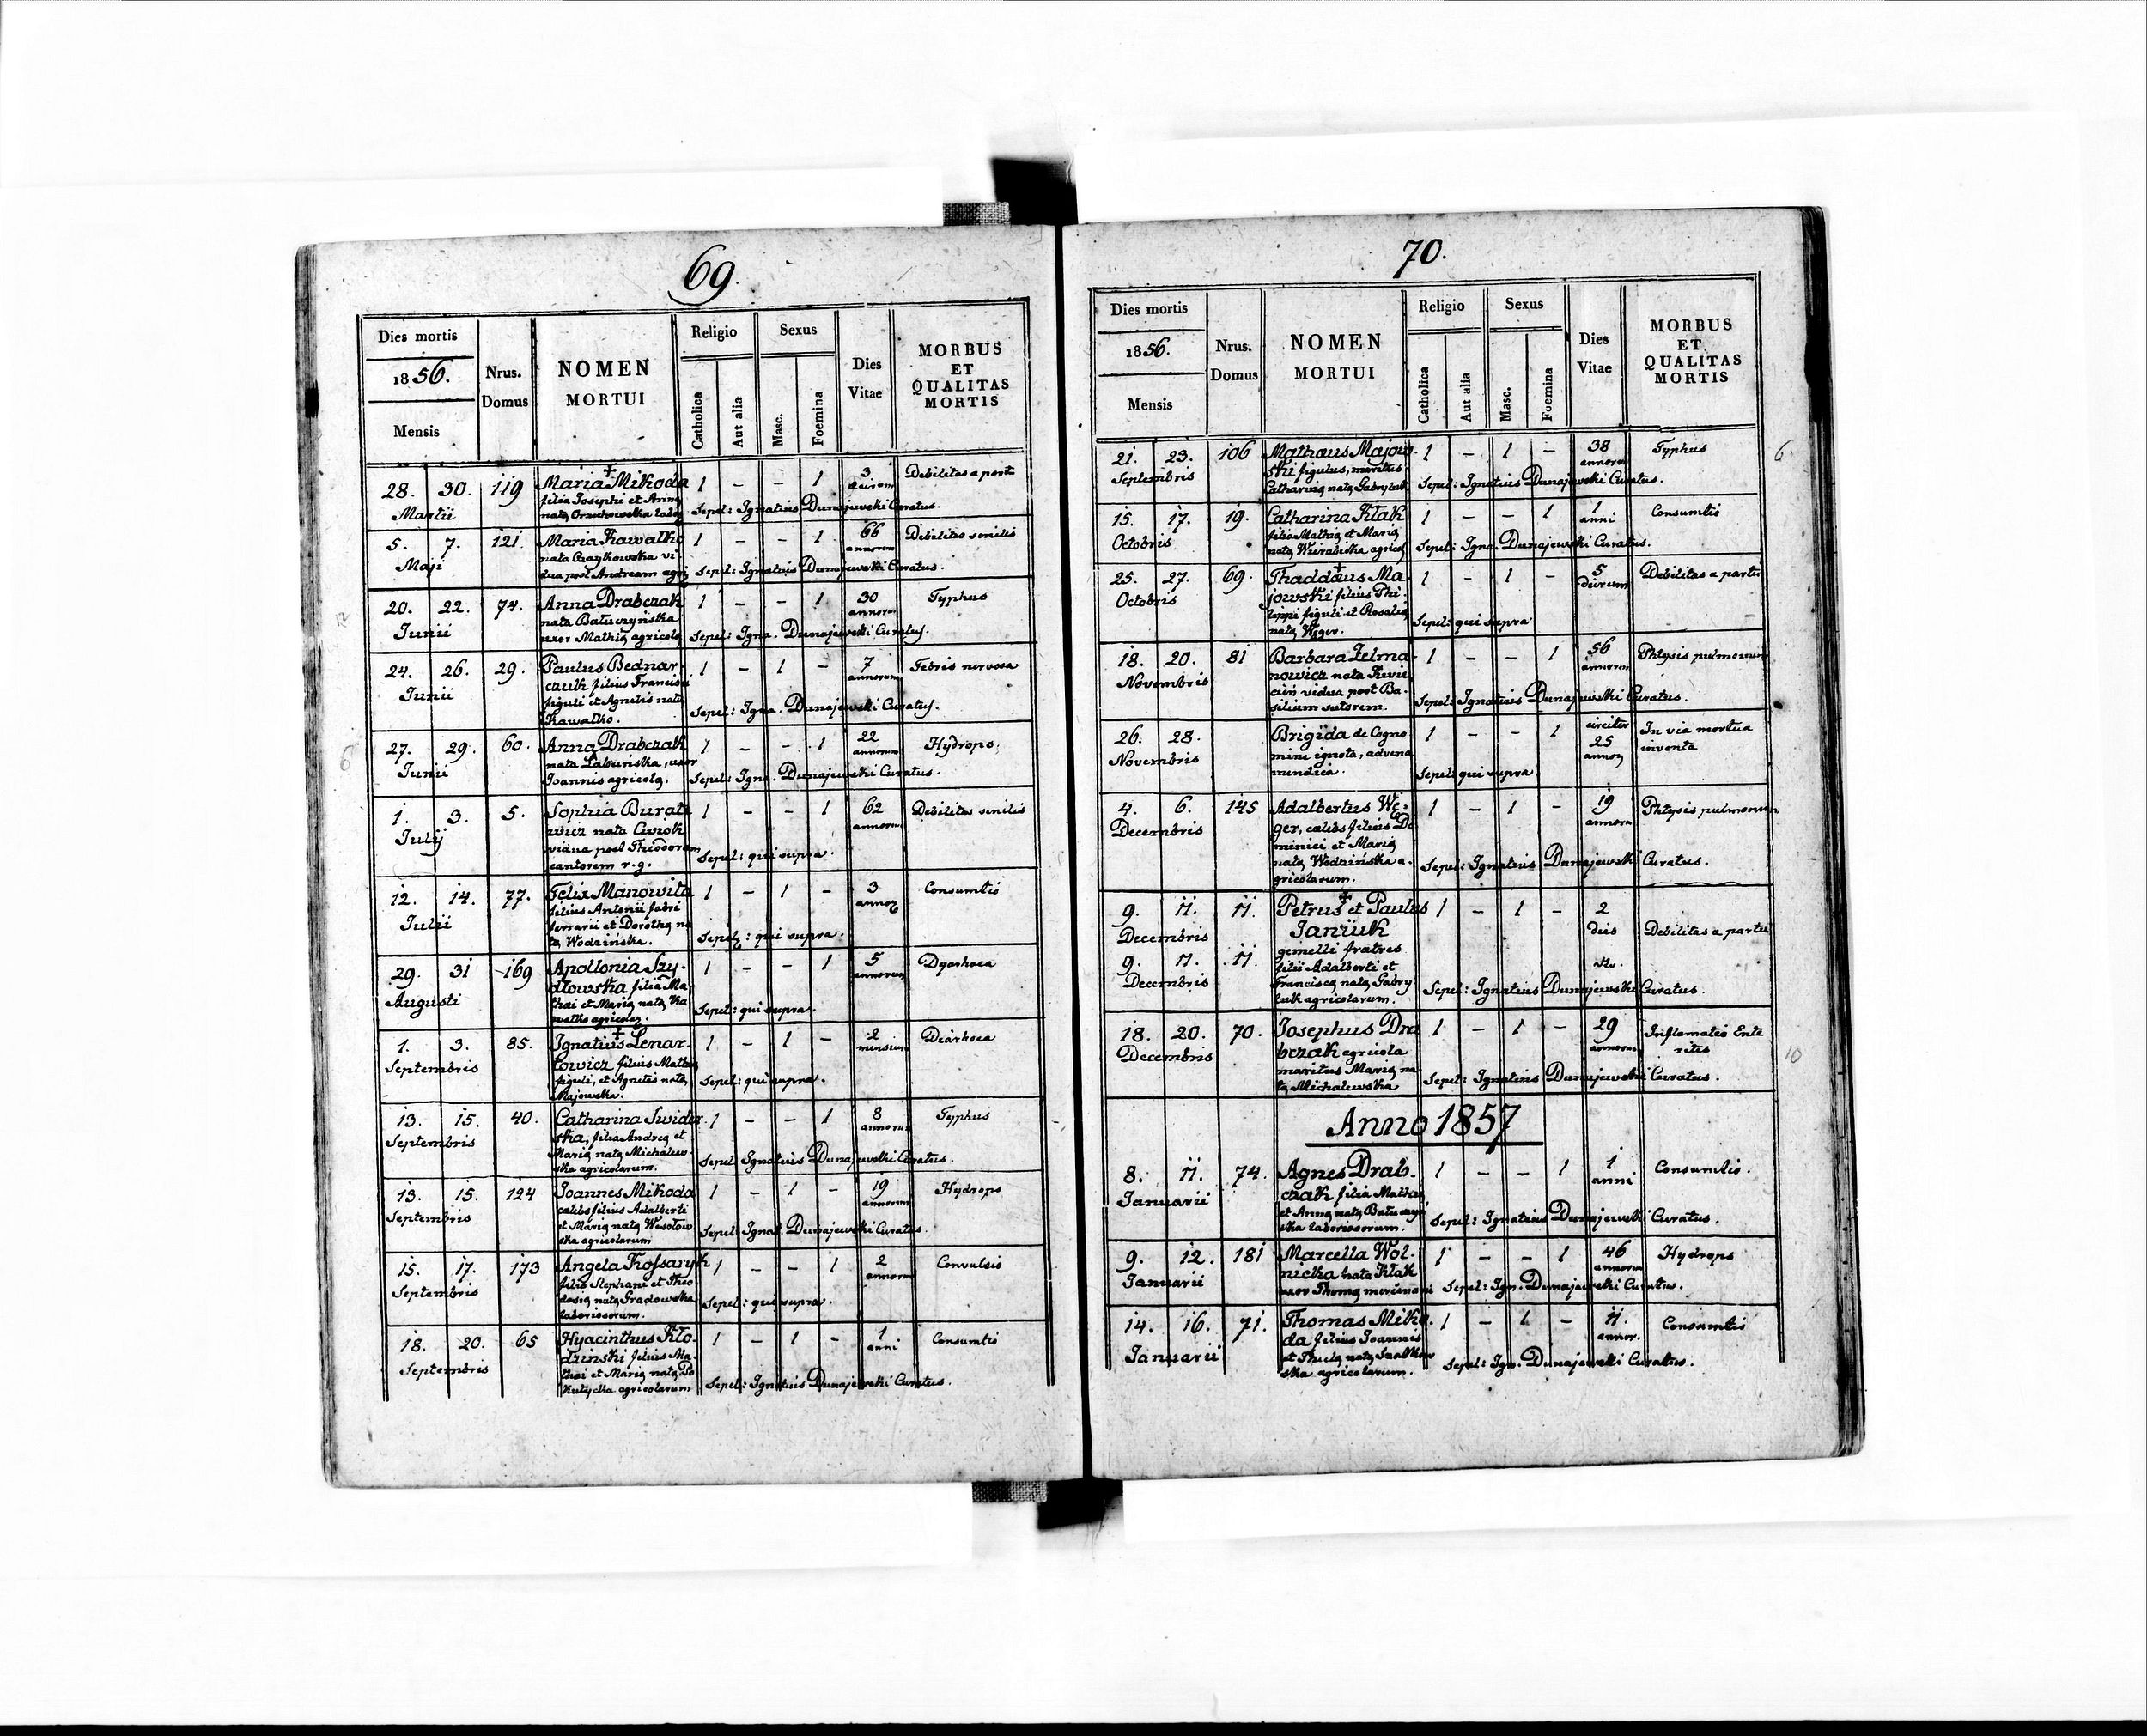 69.
Dies mortis
1856.
Mensis
Nrus.
Domus
NOMEN
MORTUI
Religio
Catholica
Aut alia
Sexus
Masc.
Foemina
Dies
Vitae
MORBUS
ET
QUALITAS
MORTIS
28. 30. 119 Maria Mikoda 1 – – 1 3 Debilitas a partu
Martii
filia Josephi et Anna
nata
Sepel: Ignatius Dunajewski Curatus.
5. 7. 121 Maria Kawalko 1 – – 1 66 Debilitas senilis
Maji
annorum
nata Czaykowska vi-
dua post Andream
Sepel: Ignatius Dunajewski Curatus.
20. 22. 74. Anna Drabczak 1 – – 1 30 Typhus
Junii
annorum
nata Batuczyńska
uxor Mathia agricola
Sepel: Igna. Dunajewski Curatus.
24. 26. 29. Paulus Bednar- 1 – 1 – 7 Febris nervosa
Junii
annorum
czuk filius Francisci
figuli et Agnetis nata
Kawalko.
Sepel: Igna. Dunajewski Curatus.
27. 29. 60. Anna Drabczak 1 – – 1 22 Hydrops
Junii
annorum
nata Łabuńska, uxor
Joannis agricola.
Sepel: Igna. Dunajewski Curatus.
1. 3. 5. Sophia Burat- 1 – – 1 62 Debilitas senilis
Julij
annorum
wicz nata
vidua post Theodorum
cantorem r. g.
Sepel: qui supra.
12. 14. 77. Felix Manowita 1 – 1 – 3 Consumtio
Julii
filius Antonii fabri
ferrarii et Dorothea na
ta Wodzińska.
Sepel: qui supra.
29. 31 169 Apollonia Szy- 1 – – 1 5 Dyarhoea
Augusti
annorum
dłowska filia Ma
thai et Maria nata Ka
walko
Sepel: qui supra.
1. 3. 85. Ignatius Lenar- 1 – 1 – 2 Diarhoea
Septembris
mensium
towicz filius Mathia
figuli, et Agnetis nata
Majowska.
Sepel: qui supra.
13. 15. 40. Catharina Swider 1 – – 1 8 Typhus
Septembris
annorum
ska, filia Andrea et
Maria nata Michalew-
ska agricolarum.
Sepel: Ignatius Dunajewski Curatus.
13. 15. 124 Joannes Mikoda 1 – 1 – 19 Hydrops
Septembris
annorum
calebs filius Adalberti
et Maria nata Wesołow
ska agricolarum
Sepel: Ignat. Dunajewski Curatus.
15. 17. 173 Angela Kossaryk 1 – – 1 2 Convulsio
Septembris
annorum
filia Stephani et Theo
dosia nata Gradowska
laboriosorum.
Sepel: qui supra.
18. 20. 65 Hyacinthus Kło- 1 – 1 – 1. Consumtio
Septembris
anni
dzinski filius Ma-
thai et Maria nata Po
kutycka agricolarum
Sepel: Ignatius Dunajewski Curatus.
70.
Dies mortis
1856.
Mensis
Nrus.
Domus
NOMEN
MORTUI
Religio
Catholica
Aut alia
Sexus
Masc.
Foemina
Dies
Vitae
MORBUS
ET
QUALITAS
MORTIS
21. 23. 106 Mathaus Majow- 1 – 1 – 38 Typhus
Septembris
annorum
ski figulus, maritus
Catharina nata Gabryluk
Sepel: Ignatius Dunajewski Curatus.
15. 17. 19. Catharina Kłak 1 – – 1 1 Consumtio
Octobris
anni
filia Mathia et Maria
nata
Sepel: Igna. Dunajewski Curatus.
25. 27. 69. Thaddaus Ma- 1 – 1 – 5 Debilitas a partu
Octobris
dierum
jowski filius Phi-
lippi figuli et Rosalia
nata Weger.
Sepel: qui supra
18. 20. 81 Barbara Zelma- 1 – – 1 56 Phtysis pulmonum
Novembris
annorum
nowicz nata
vidua post Ba-
silium sutorem.
Sepel: Ignatius Dunajewski Curatus.
26. 28. Brigida de Cogno- 1 – – 1 circiter 25 In via mortua
Novembris
inventa
mine ignota, advena
mendica.
Sepel: qui supra
4. 6. 145 Adalbertus We- 1 – 1 – 19 Phtysis pulmonum
Decembris
annorum
ger, calebs filius Do
minici et Maria
nata Wodzińska a-
gricolarum.
Sepel: Ignatius Dunajewski Curatus.
9. 11. 11. Petrus et Paulus 1 – 1 – 2
Decembris
Janziuk
dies Debilitas a partu
gemelli fratres
9. 11. 11.
Decembris
filii Adalberti et
Francisca nata Gabry
luk agricolarum.
Sepel: Ignatius Dunajewski Curatus.
18. 20. 70. Josephus Dra 1 – 1 – 29 Inflamatio Ente
Decembris
annorum
ritis
bczak agricola
maritus Maria na
ta Michalewska
Sepel: Ignatius Dunajewski Curatus.
Anno 1857
8. 11. 74. Agnes Drab- 1 – – 1 1 Consumtio.
Januarii
anni
czak filia Mathia
et Anna nata Batuczyn
ska laboriosorum.
Sepel: Ignatius Dunajewski Curatus.
9. 12. 181 Marcella Wol- 1 – – 1 46 Hydrops
Januarii
annorum
nicka nata Kłak
uxor Thoma
Sepel: Ign. Dunajewski Curatus.
14. 16. 71. Thomas Miko- 1 – 1 – 11. Consumtio
Januarii
annor.
da filius Joannis
et Thecla nata
ska agricolarum.
Sepel: Ign. Dunajewski Curatus.